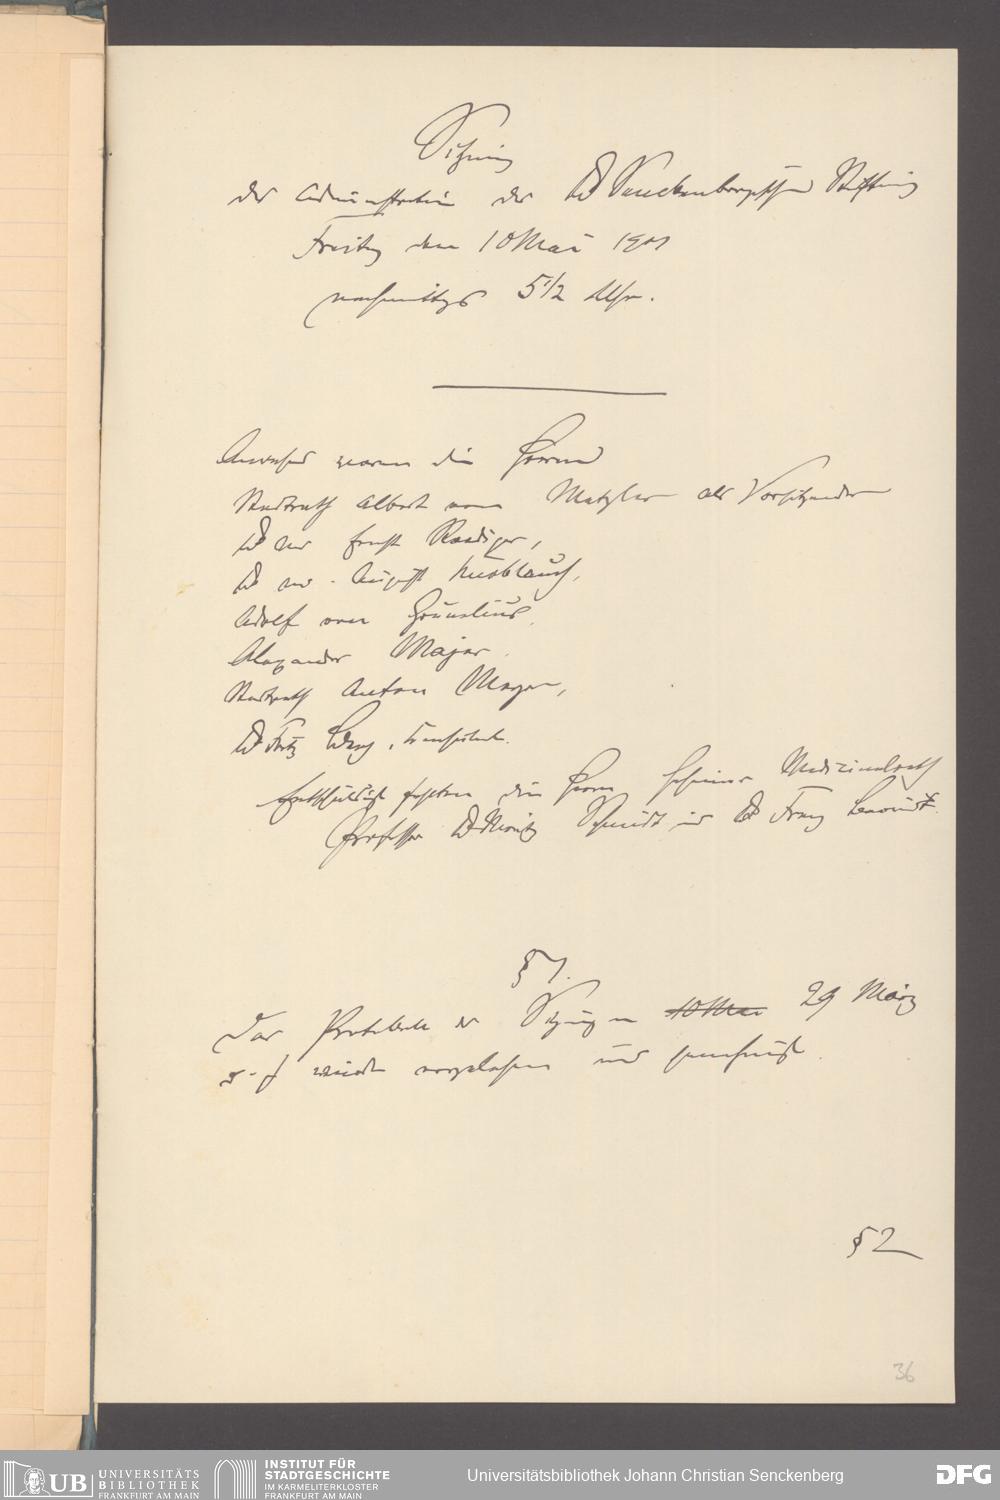 Sitzung
der Administration der Dr Senckenbergischen Stiftung
Freitag den 10 Mai 1901
nachmittags 5 1/2 Uhr.
Anwesend waren die Herren
Stadtrath Albert von Metzler als Vorsitzender
Dr jur Ernst Roediger,
Dr jur. August Knoblauch,
Adolf von Grunelius,
Alexander Majer.
Stadtrath Anton Meyer,
Dr Fritz Berg, Consulent.
Entschuldigt fehlten die Herrn Geheimer Medizinalrath
Professor Dr Moritz Schmidt und Dr Franz
§ 1.
Das Protokoll der Sitzung vom 10 Mai 29 März
d. J wurde vorgelesen und genehmigt.
§ 2
36
UB UNIVERSITÄTS
BIBLIOTHEK
FRANKFURT AM MAIN
INSTITUT FÜR
STADTGESCHICHTE
IM KARMELITERKLOSTER
FRANKFURT AM MAIN
Universitätsbibliothek Johann Christian Senckenberg
DFG